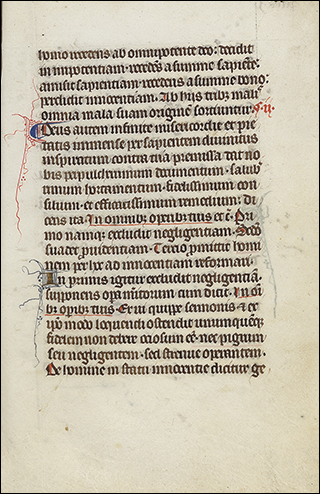 homo recedens ab omnipotente deo: decidit
in impotentiam. recedēs a summe sapiēte:
amisit sapientiam. recedens a summe bono:
perdidit innocentiam. Ab hijs tribꝫ malis
omnia mala suam originē sortiuntur.
Deus autem infinite misericordie et pie
tatis immense per sapientem divinitus
inspiratum contra tria premissa dat no
bis perpulchrum documentum. salub
rimum hortamentum. fidelissimum con
silium. et efficacissimum remedium. di
cens ita. In omnibꝫ operibꝫ tuis et c̄. Pri
mo namque excludit negligentiam. Secō
suadet providentiam. Tercio promittit homi
nem per hec ad innocentiam reformari.
In primis igitur excludit negligentiā.
supponens cum dicit. In oīi
bꝫ opibꝫ tuis. quippe sermonis et ex
ipō modo loquendi ostendit unumquēqꝫ
fidelem non debere ociosum eē. nec pigrum
seu negligentem. sed strenue operantem.
De homine in statu innocentie dicitur ge